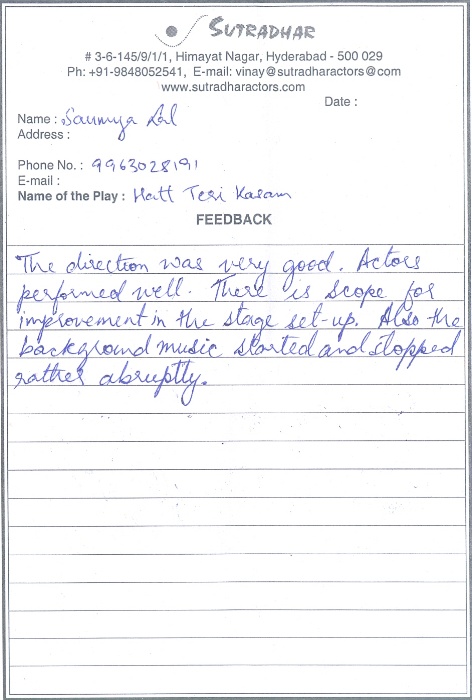 SUTRADHAR
# 3-6-145/9/1/1, Himayat Nagar, Hyderabad - 500 029
Ph: +91-9848052541, E-mail: vinay@sutradharactors@com
www.sutradharactors.com
Date :
Name : Saumya Lal
Address :
Phone No. : 9963028191
E-mail :
Name of the Play : Hatt Teri Kasam
FEEDBACK
The direction was very good. Actors
performed well. There is scope for
improvement in the stage set-up. Also the
background music started and stopped
rather abruptly.